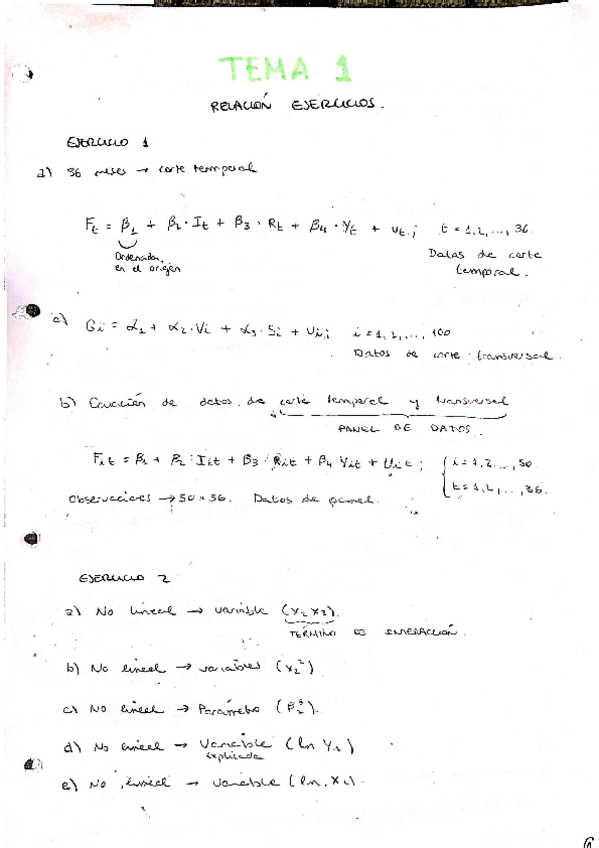 TEMA 1
RELACIÓN EJERCICIOS.
EJERCICIO 1
a) 36 meses → corte temporal
F_t = β_1 + β_2 · I_t + β_3 · R_t + β_4 · Y_t + u_t ; t = 1,2, ..., 36.
Ordenada en el origen
Datos de corte temporal.
c) G_i = α_1 + α_2 · V_i + α_3 · S_i + U_i ; i = 1,2, ..., 100
Datos de corte transversal.
b) Ecuación de datos de corte temporal y transversal
PANEL DE DATOS.
F_it = β_1 + β_2 · I_it + β_3 · R_it + β_4 Y_it + U_it ; { i = 1,2, ..., 50.
t = 1,2, ..., 36.
Observaciones → 50 × 36. Datos de panel.
EJERCICIO 2
a) No lineal → variable (x_2 x_3).
TÉRMINO DE INTERACCIÓN.
b) No lineal → variables (x_2^2)
c) No lineal → Parámetro (β_2^3).
d) No lineal → Variable (ln Y_i)
explicada
e) No lineal → variable (ln X_i).